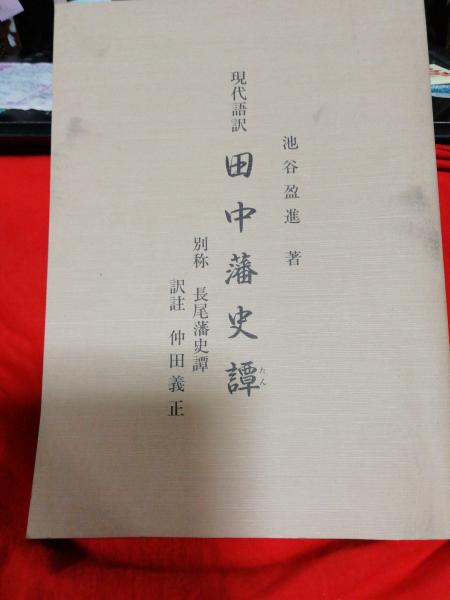 池谷盈進 著
現代語訳 田中藩史譚
たん
別称 長尾藩史譚
訳註 仲田義正